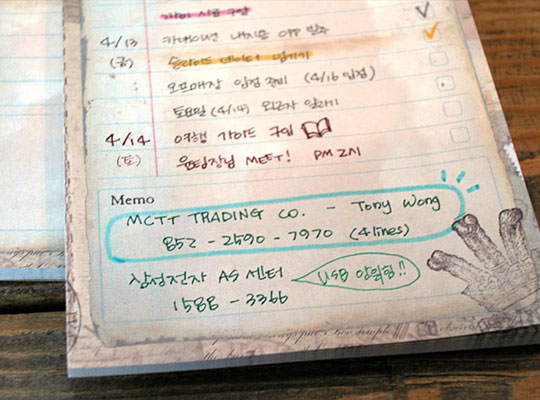 4/13 카네이션 내지용 OPP 발주
(금) 슬라이드 데이터 넘기기
오프매장 입점 준비 (4/16 입점)
토요일 (4/14)
4/14 여행 가이드 구입
(토) 윤팀장님 MEET! PM 2시
Memo
MCTT TRADING CO. - Tony Wong
852 - 2590 - 7970 (4lines)
삼성전자 AS 센터 USB
1588 - 3366